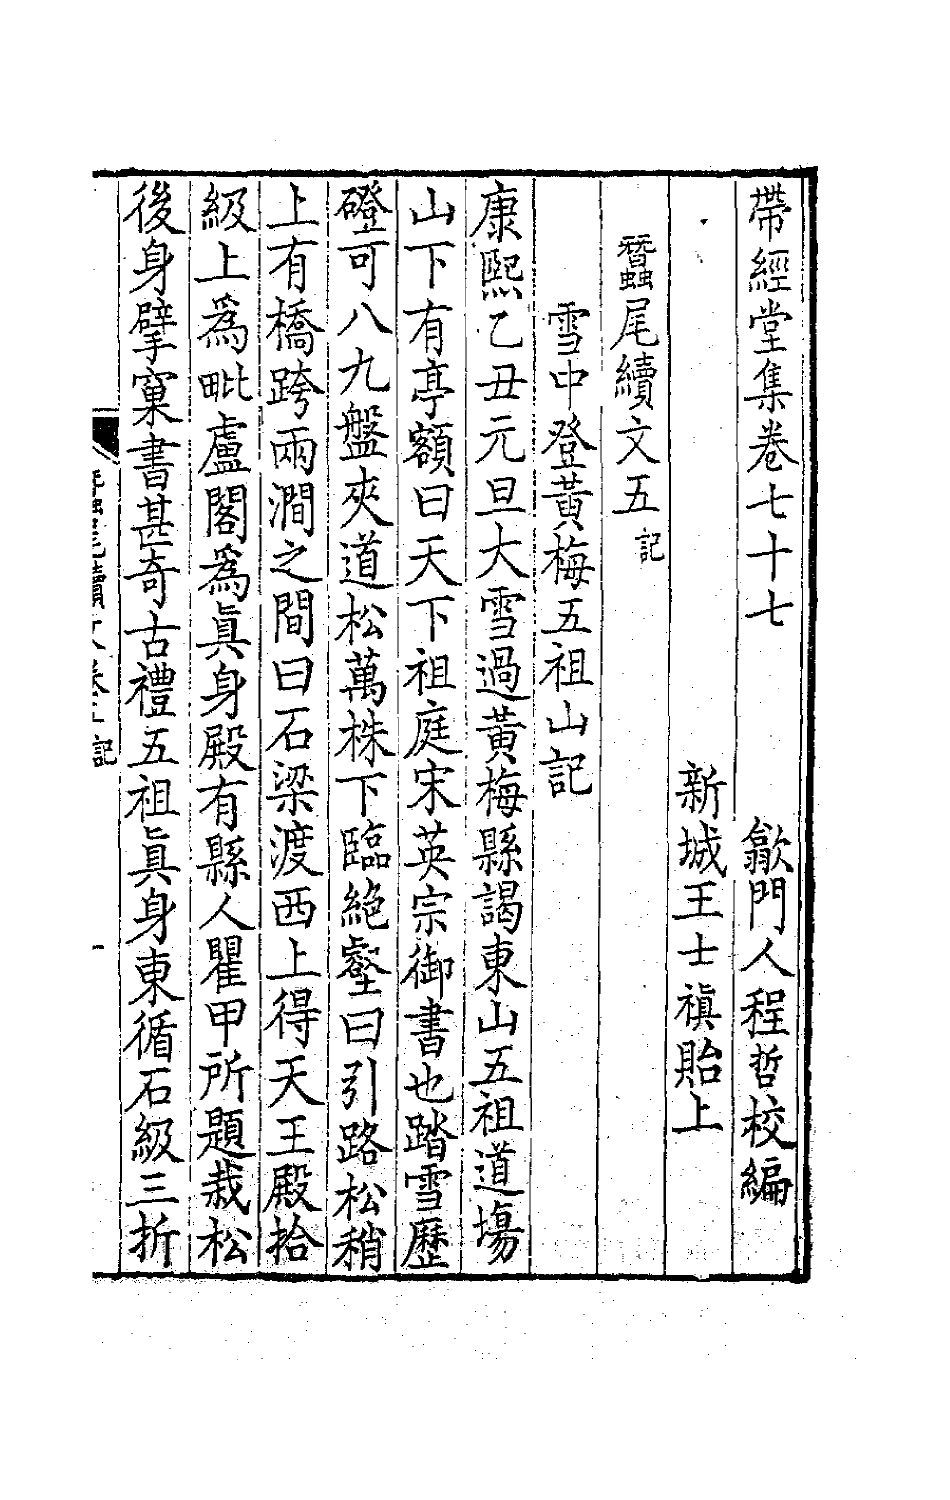 帶經堂集卷七十七
歙門人程哲校編
新城王士禛貽上
蠶尾續文五 記
雪中登黃梅五祖山記
康熙乙丑元旦大雪過黃梅縣謁東山五祖道塲
山下有亭額曰天下祖庭宋英宗御書也踏雪歷
磴可八九盤夾道松萬株下臨絶壑曰引路松稍
上有橋跨兩澗之間曰石梁渡西上得天王殿拾
級上爲毗盧閣爲眞身殿有縣人瞿甲所題栽松
後身擘窠書甚奇古禮五祖眞身東循石級三折